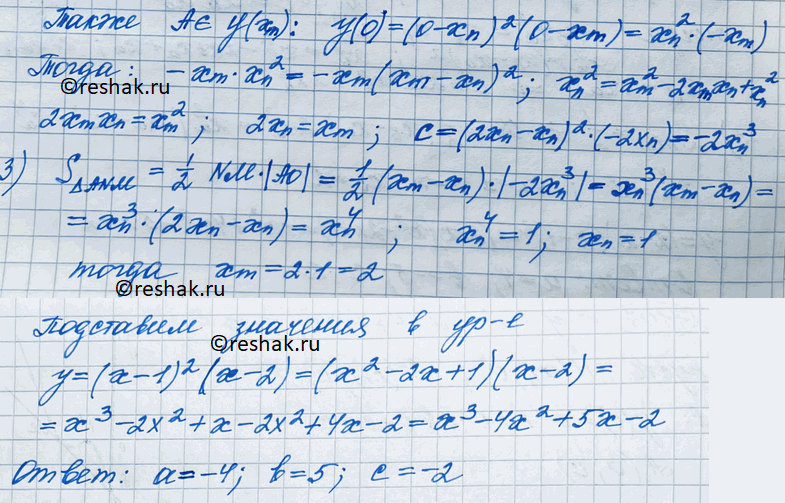 Также A∈ y(xm): y(0)=(0-xn)²(0-xm)=xn²·(-xm)
Тогда: -xm·xn²=-xm(xm-xn)²; xn²=xm²-2xmxn+xn²
©reshak.ru
2xmxn=xm²; 2xn=xm; c=(2xn-xn)²·(-2xn)=-2xn³
3) S△ANM=1/2 NM·|AO|=1/2(xm-xn)·|-2xn³|=xn³(xm-xn)=
=xn³·(2xn-xn)=xn⁴; xn⁴=1; xn=1
тогда xm=2·1=2
©reshak.ru
Подставим значения в ур-е
©reshak.ru
y=(x-1)²(x-2)=(x²-2x+1)(x-2)=
=x³-2x²+x-2x²+4x-2=x³-4x²+5x-2
Ответ: a=-4; b=5; c=-2